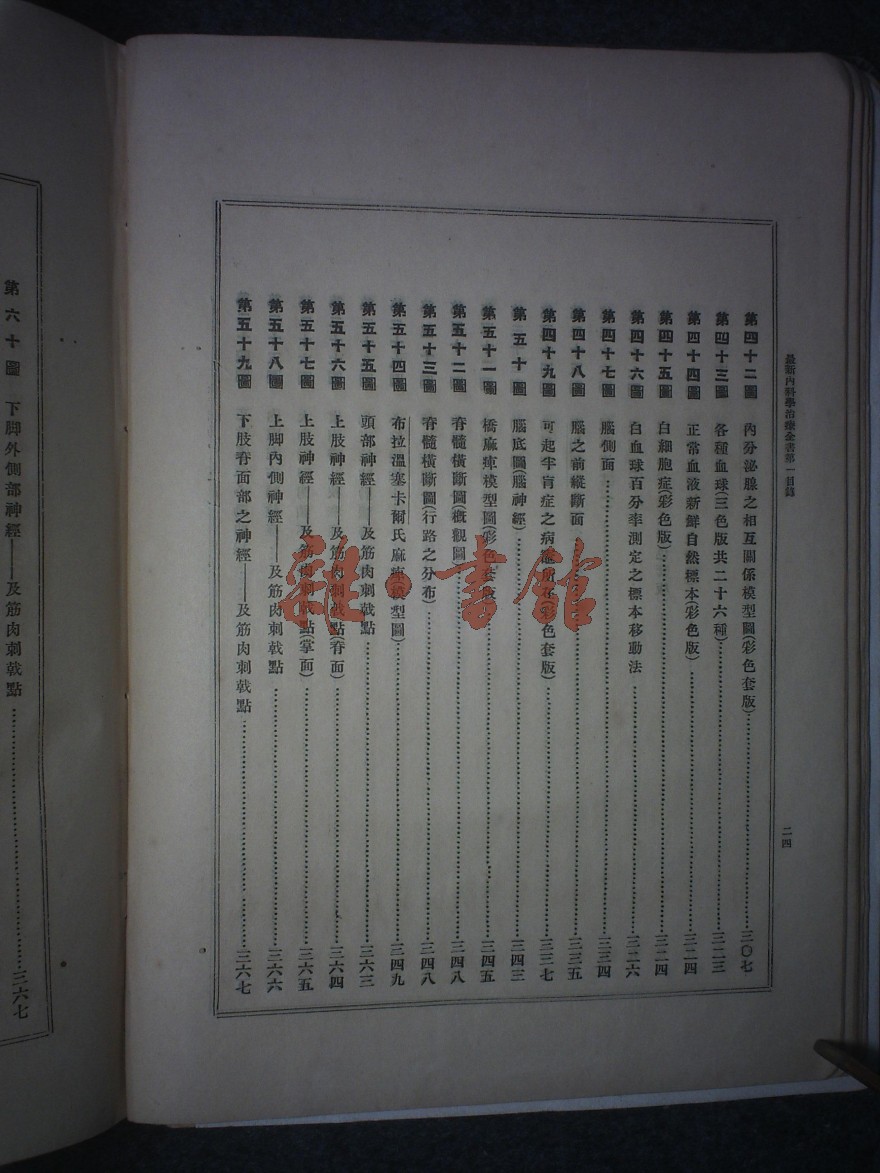 最新內科學治療全書第一目錄
二四
第四十二圖 內分泌腺之相互關係模型圖(彩色套版)……三〇七
第四十三圖 各種血球(三色版共二十六種)……三二三
第四十四圖 正常血液新鮮自然標本(彩色版)……三二四
第四十五圖 白細胞症(彩色版)……三二四
第四十六圖 白血球百分率測定之標本移動法……三二六
第四十七圖 腦側面……三三四
第四十八圖 腦之前縱斷面……三三五
第四十九圖 可起半盲症之病 (彩色套版)……三三七
第五十圖 腦底圖(腦神經)……三四三
第五十一圖 橋麻痺模型圖(彩色套版)……三四五
第五十二圖 脊髓橫斷圖(概觀圖)……三四八
第五十三圖 脊髓橫斷圖(行路之分布)……三四八
第五十四圖 布拉溫塞卡爾氏麻痺(模型圖)……三四九
第五十五圖 頭部神經——及筋肉刺戟點……三六三
第五十六圖 上肢神經——及筋肉刺戟點(脊面)……三六四
第五十七圖 上肢神經——及筋肉刺戟點(掌面)……三六五
第五十八圖 上脚內側神經——及筋肉刺戟點……三六六
第五十九圖 下肢脊面部之神經——及筋肉刺戟點……三六七
第六十圖 下脚外側部神經——及筋肉刺戟點……三六七
雜·書館